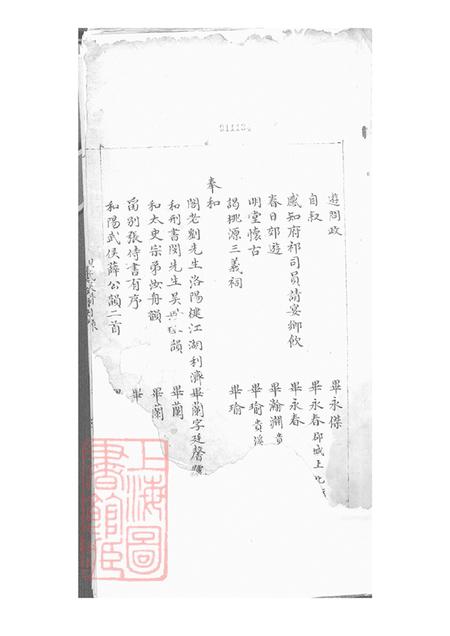 遊問政 畢永傑
自叔 畢永春
感知府祁司員請宴鄉飲 畢永春
春日郊遊 畢瀚瀾
明堂懷古 畢瑜貴溪
謁桃源三義祠 畢瑜
奉和
閣老劉先生洛陽樓江湖利濟 畢蘭字廷馨
和刑書閔先生吳 韻 畢蘭
和太史宗弟汝舟韻 畢蘭
留別張侍書有序 畢
和陽武侯薛公韻二首
上海圖書館藏